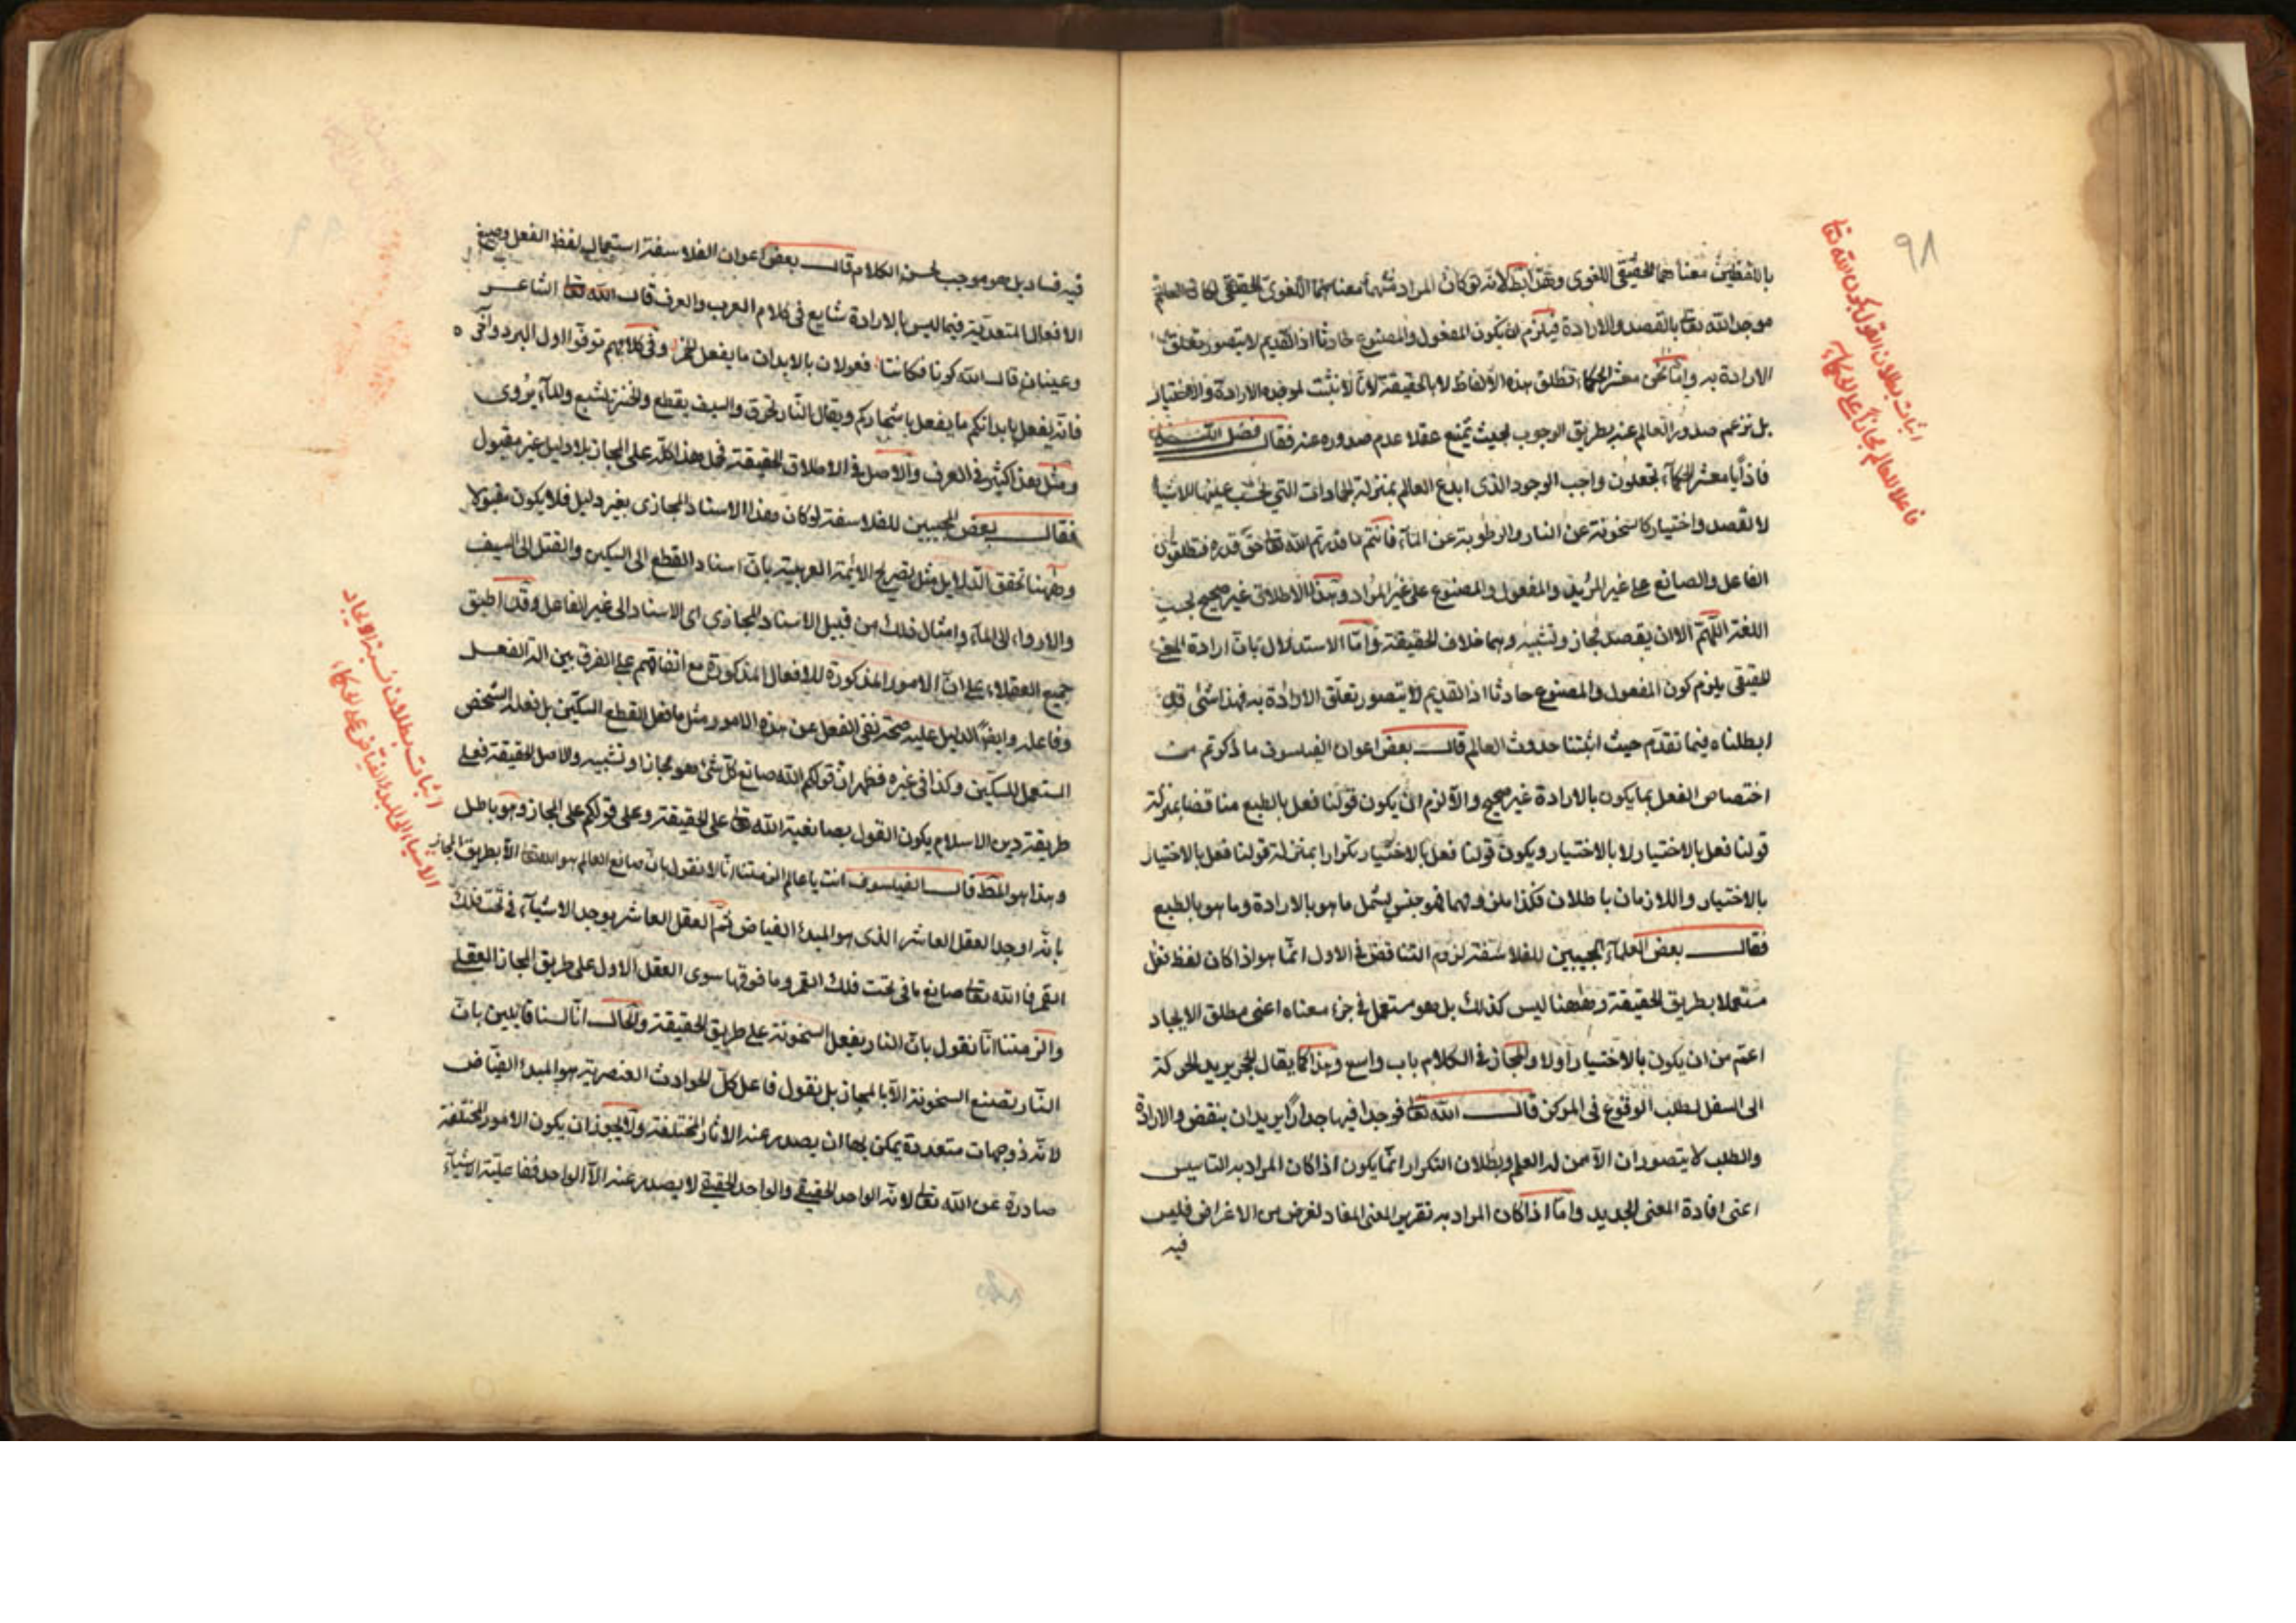 ٩٨
اثبات بطلان القول بكون الله تعا
فاعلا للعالم مجازا على الحكماء
باللفظين معناهما الحقيقي اللغوي وهذا بط لانه لو كان المراد منهما معناهما اللغوي الحقيقي لكان العالم
موجد الله تعا بالقصد والارادة فيلزم ان يكون المفعول والمصنوع حادثا اذ القديم لا يتصور تعلق
الارادة به وانما نحن معشر الحكماء نطلق هذه الالفاظ لا بالحقيقة لانا لا نثبت لموجده الارادة والاختيار
بل نزعم صدور العالم عنه بطريق الوجوب بحيث يمتنع عقلا عدم صدوره عنه فقال فضل
فاذا يا معشر الحكماء تجعلون واجب الوجود الذى ابدع العالم بمنزلة الجمادات التي تجب عليها الاشياء
لا لقصد واختيار كالسخونة عن النار والرطوبة عن الماء فانتم ما قدرتم الله تعا حق قدره فتطلقون
الفاعل والصانع على غير المريد والمفعول والمصنوع على غير المراد وهذا الاطلاق غير صحيح بحسب
اللغة اللهم الا ان يقصد مجاز وتشبيه وهما خلاف الحقيقة واما الاستدلال بان ارادة المعنى
الحقيقي يلزم كون المفعول والمصنوع حادثا اذ القديم لا يتصور تعلق الارادة به فهذا شئ قد
ابطلناه فيما تقدم حيث اثبتنا حدوث العالم قال بعض اعوان الفيلسوف ما ذكرتم من
اختصاص الفعل بما يكون بالارادة غير صحيح والا لزم ان يكون قولنا فعل بالطبع مناقضا بمنزلة
قولنا فعل بالاختيار لا بالاختيار ويكون قولنا فعل بالاختيار تكرارا بمنزلة قولنا فعل بالاختيار
بالاختيار واللازمان باطلان فكذا ملزومهما فهو جنس يشمل ما هو بالارادة وما هو بالطبع
فقال بعض العلماء المجيبين للفلاسفة لزوم التناقض في الاول انما هو اذا كان لفظ فعل
مستعملا بطريق الحقيقة وههنا ليس كذلك بل هو مستعمل في جزء معناه اعنى مطلق الايجاد
اعم من ان يكون بالاختيار اولا والمجاز في الكلام باب واسع وهذا كما يقال الحجر يريد الحركة
الى السفل لطلب الوقوع فى المركز قال الله تعا فوجدا فيها جدارا يريد ان ينقض والارادة
والطلب لا يتصوران الا من له العلم وبطلان التكرار انما يكون اذا كان المراد به التاسيس
اعنى افادة المعنى الجديد واما اذا كان المراد به تقرير المعنى المفاد لغرض من الاغراض فليس
فيه
فيه فساد بل هو موجب لحسن الكلام قال بعض اعوان الفلاسفة استعمال لفظ الفعل وصيغ
الافعال المتعدية فيما ليس بالارادة شايع فى كلام العرب والعرف قال الله تعا الشاعر
وعينان قال الله كونا فكانتا فعولان بالالباب ما يفعل الخمر وفى كلامهم توقوا اول البرد وآخره
فانه يفعل بابدانكم ما يفعل باشجاركم ويقال النار تحرق والسيف يقطع والخبز يشبع والماء يروى
ومثل هذا كثير في العرف والاصل في الاطلاق الحقيقة فحمل هذا كله على المجاز بلا دليل غير مقبول
فقال بعض المجيبين للفلاسفة لو كان هذا الاسناد المجازى بغير دليل فلا يكون مقبولا
وههنا تحقق الدلايل مثل تصريح الائمة العربية بان اسناد القطع الى السكين والقتل الى السيف
والارواء الى الماء وامثال ذلك من قبيل الاسناد المجازي اى الاسناد الى غير الفاعل وقد اطبق
جميع العقلاء على ان الامور المذكورة للافعال المذكورة مع اتفاقهم على الفرق بين الة الفعل
وفاعله وايضا الدليل عليه صحة نفى الفعل عن هذه الامور مثل ما فعل القطع السكين بل فعله الشخص
المستعمل للسكين وكذا في غيره فظهر ان قولكم الله صانع كل شئ هو مجازا وتشبيه والاصل الحقيقة فعلى
طريقة دين الاسلام يكون القول بصانعية الله تعا على الحقيقة وعلى قولكم على المجاز وهو باطل
وهذا هو المط قال الفيلسوف انت يا عالم الزمتنا انا لا نقول بان صانع العالم هو الله تعا الا بطريق المجاز
بانه اوجد العقل العاشر الذى هو المبدء الفياض ثم العقل العاشر يوجد الاشياء في تحت فلك
القمر فالله تعا صانع ما فى تحت فلك القمر وما فوقها سوى العقل الاول على طريق المجاز العقلى
والزمتنا انا نقول بان النار يفعل السخونة على طريق الحقيقة والحال انا لسنا قايلين بان
النار تصنع السخونة الا بالمجاز بل نقول فاعل كل الحوادث العنصرية هو المبدء الفياض
لانه ذو جهات متعددة يمكن بها ان يصدر عنه الاثار المختلفة ولا يجوز ان يكون الامور المختلفة
صادرة عن الله تعا لانه الواحد الحقيقى والواحد الحقيقى لا يصدر عنه الا الواحد ففاعلية الاشياء
اثبات بطلان نسبة الايجاد
الاشياء الى المبدء الفياض على الحكماء